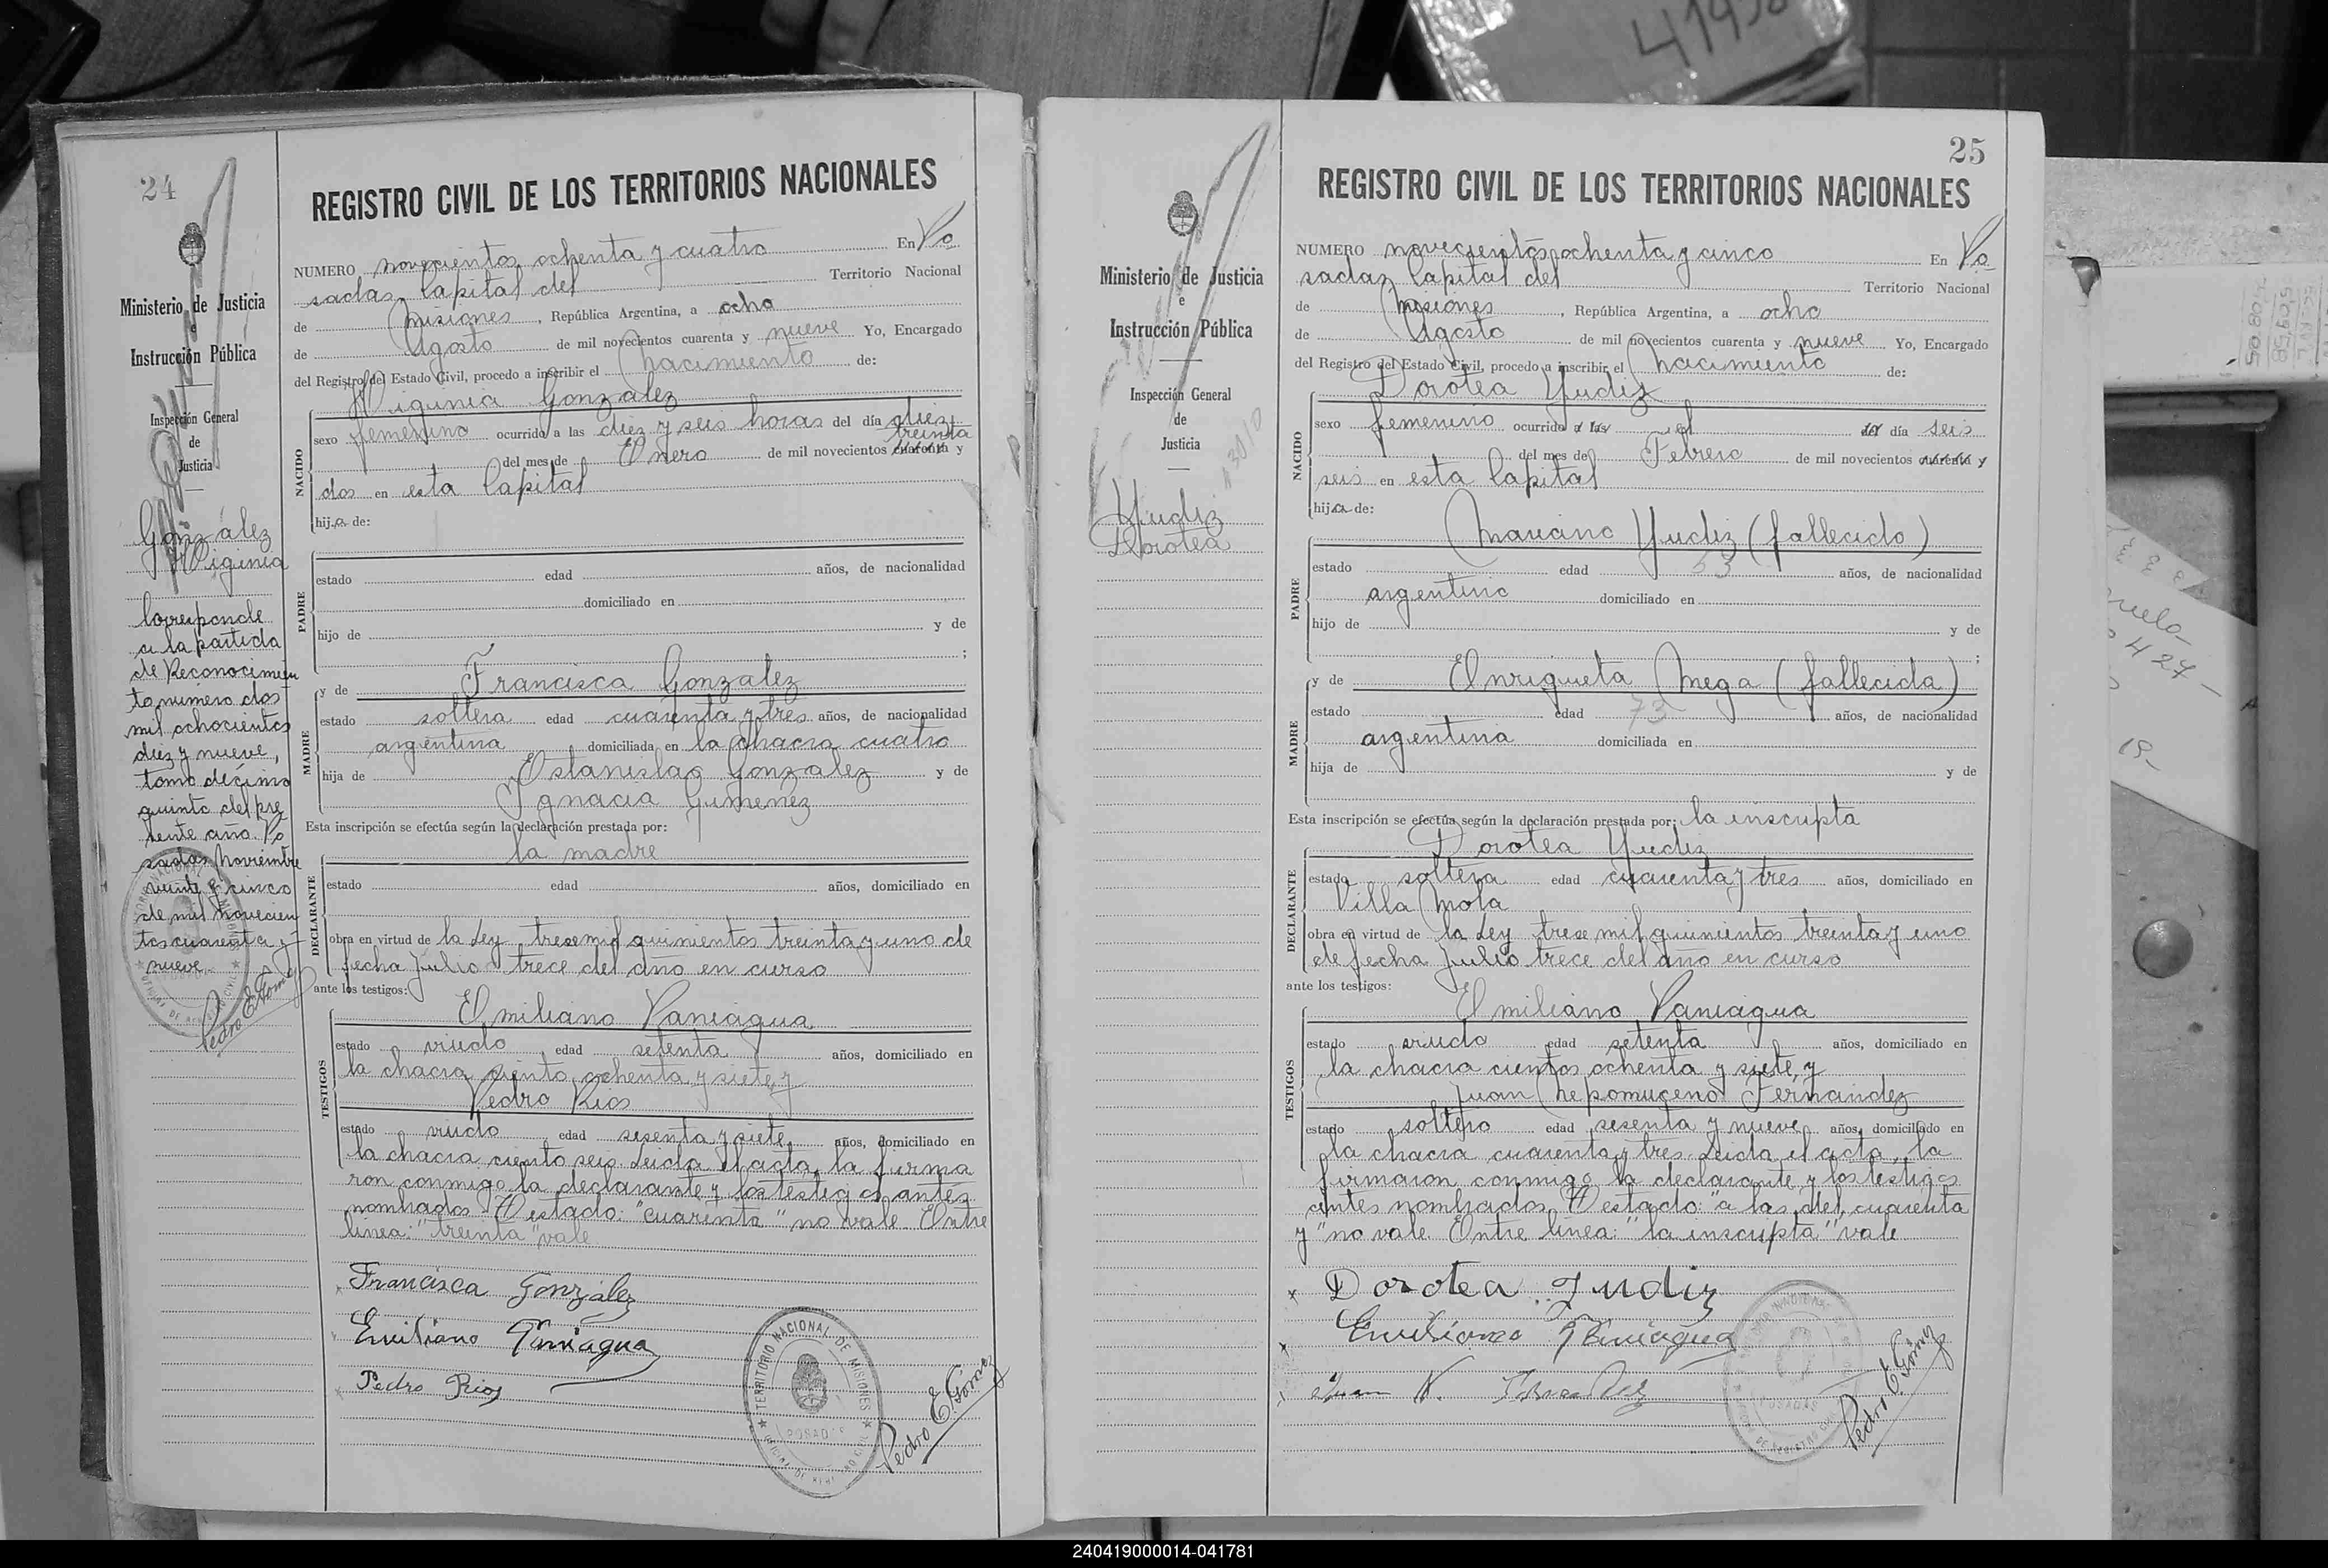 41498
24
Ministerio de Justicia
e
Instrucción Pública
Inspección General
de
Justicia
González
Higinia
Corresponde
a la partida
de Reconocimien
to número dos
mil ochocientos
diez y nueve,
tomo décimo
quinto del pre
sente año. Po
sadas, Noviembre
veinte y cinco
de mil novecien
tos cuarenta y
nueve
Pedro E. Gómez
REGISTRO CIVIL DE LOS TERRITORIOS NACIONALES
NUMERO novecientos ochenta y cuatro En Po
sadas Capital del Territorio Nacional
de Misiones, República Argentina, a ocho
de Agosto de mil novecientos cuarenta y nueve Yo, Encargado
del Registro del Estado Civil, procedo a inscribir el nacimiento de:
Higinia Gonzalez
sexo femenino ocurrido a las diez y seis horas del día diez
treinta
del mes de Enero de mil novecientos cuarenta y
dos en esta Capital
hija de:
NACIDO
estado edad años, de nacionalidad
domiciliado en
hijo de y de
;
PADRE
y de Francisca Gonzalez
estado soltera edad cuarenta y tres años, de nacionalidad
argentina domiciliada en la chacra cuatro
hija de Estanislao Gonzalez y de
Ignacia Gimenez
MADRE
Esta inscripción se efectúa según la declaración prestada por:
la madre
estado edad años, domiciliado en
obra en virtud de la Ley trece mil quinientos treinta y uno de
fecha Julio trece del año en curso
DECLARANTE
ante los testigos:
Emiliano Paniagua
estado viudo edad setenta años, domiciliado en
la chacra ciento ochenta y siete, y
Pedro Rios
estado viudo edad sesenta y siete años, domiciliado en
la chacra ciento seis. Leida el acta, la firma
TESTIGOS
ron conmigo la declarante y los testigos antes
nombrados. Testado: "cuarenta" no vale. Entre
linea: "treinta" vale
Francisca González
Emiliano Paniagua
Pedro Rios
TERRITORIO NACIONAL DE MISIONES
POSADAS
Pedro E. Gómez
25
Ministerio de Justicia
e
Instrucción Pública
Inspección General
de
Justicia
Yudiz
Dorotea
REGISTRO CIVIL DE LOS TERRITORIOS NACIONALES
NUMERO novecientos ochenta y cinco En Po
sadas Capital del Territorio Nacional
de Misiones, República Argentina, a ocho
de Agosto de mil novecientos cuarenta y nueve Yo, Encargado
del Registro del Estado Civil, procedo a inscribir el nacimiento de:
Dorotea Yudiz
sexo femenino ocurrido a las el del día seis
del mes de Febrero de mil novecientos cuarenta y
seis en esta Capital
hija de:
NACIDO
Mariano Yudiz (fallecido)
estado edad 53 años, de nacionalidad
argentino domiciliado en
hijo de y de
;
PADRE
y de Enriqueta Mega (fallecida)
estado edad 73 años, de nacionalidad
argentina domiciliada en
hija de y de
MADRE
Esta inscripción se efectúa según la declaración prestada por: la inscripta
Dorotea Yudiz
estado soltera edad cuarenta y tres años, domiciliado en
Villa Mola
obra en virtud de la Ley trece mil quinientos treinta y uno
de fecha Julio trece del año en curso
DECLARANTE
ante los testigos:
Emiliano Paniagua
estado viudo edad setenta años, domiciliado en
la chacra cientos ochenta y siete, y
Juan Nepomuceno Fernandez
estado soltero edad sesenta y nueve años, domiciliado en
la chacra cuarenta y tres. Leida el acta, la
TESTIGOS
firmaron conmigo la declarante y los testigos
antes nombrados. Testado: "a las, del, cuarenta
y" no vale. Entre linea: "la inscripta" vale
Dorotea Judiz
Emiliano Paniagua
Juan N. Fernandez
POSADAS
Pedro E. Gómez
240419000014-041781